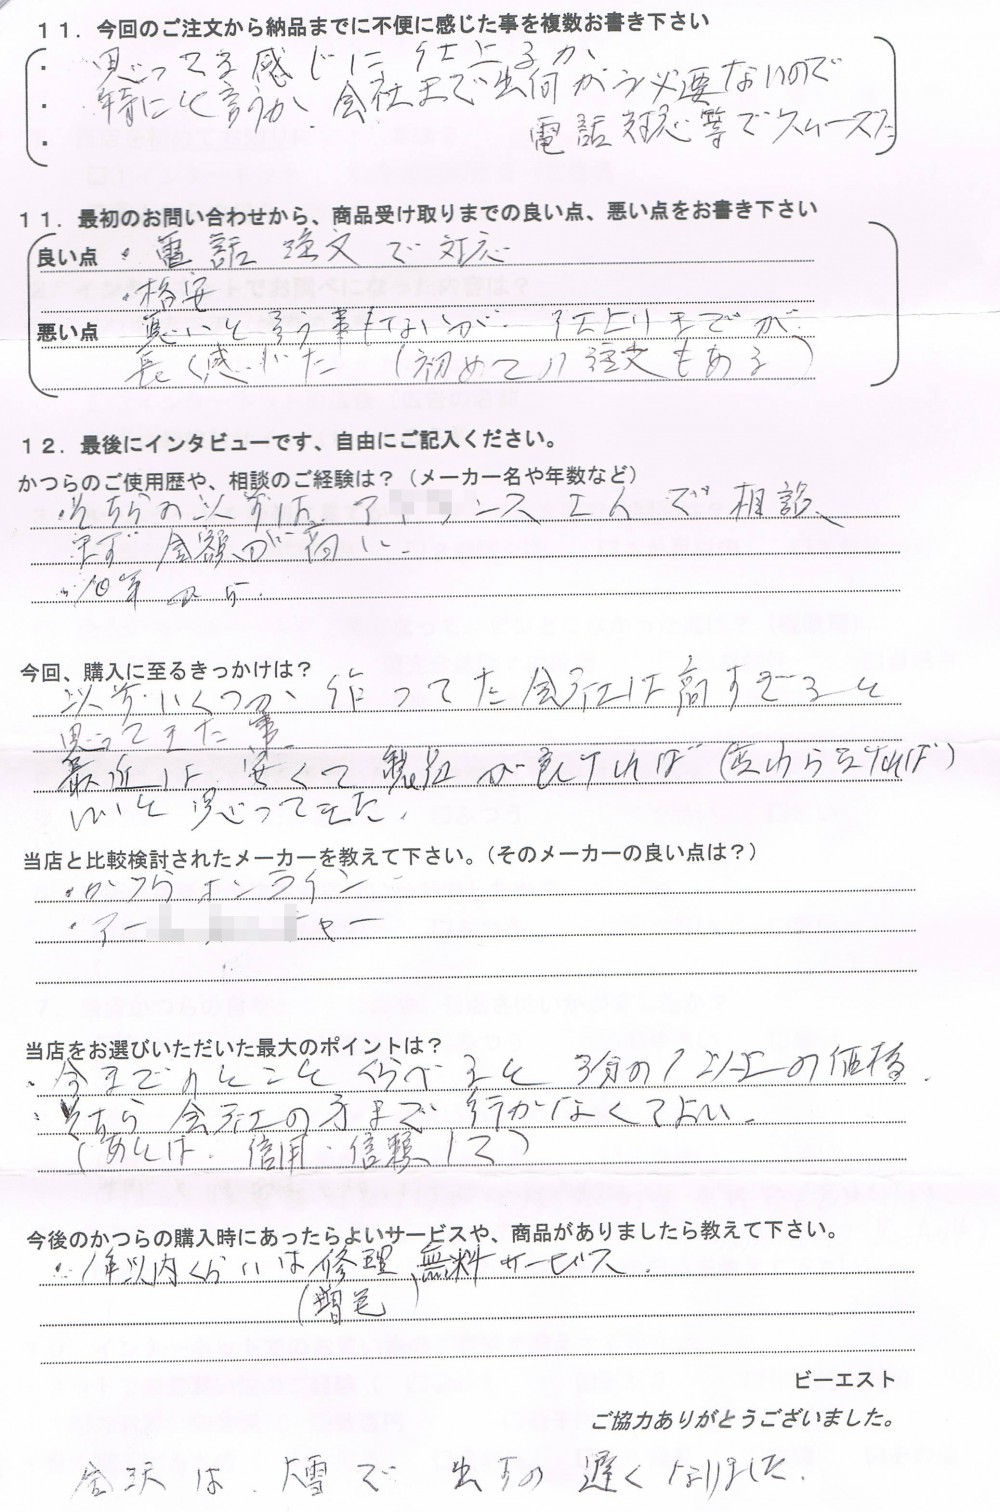 11．今回のご注文から納品までに不便に感じた事を複数お書き下さい
・ 思ってる感じに仕上るか
・ 特にと言うか 会社まで出向がう必要ないので
・ 電話対応等でスムーズだ
11．最初のお問い合わせから、商品受け取りまでの良い点、悪い点をお書き下さい
良い点 ・電話注文で対応
・格安
悪い点 悪いと言う事もないが、仕上りまでが
長く感じた （初めての注文もある）
12．最後にインタビューです、自由にご記入ください。
かつらのご使用歴や、相談のご経験は？（メーカー名や年数など）
・そちらの以前は、ア ンスさんで相談、
まず金額が高い。
・10年
今回、購入に至るきっかけは？
以前いくつか 作ってた会社は高すぎると
思ってきた事。
最近は安くて製品が良ければ（変わらなければ）
いいと思ってきた。
当店と比較検討されたメーカーを教えて下さい。（そのメーカーの良い点は？）
・かつらオンライン
・アー チャー
当店をお選びいただいた最大のポイントは？
・今までのとことくらべると 3分の1以上の価格。
・そちら会社の方まで行かなくてよい。
（あとは、信用・信頼して）
今後のかつらの購入時にあったらよいサービスや、商品がありましたら教えて下さい。
・1年以内くらいは修理 無料サービス。
（増毛）
ビーエスト
ご協力ありがとうございました。
金沢は、大雪で 出すの遅くなりました。